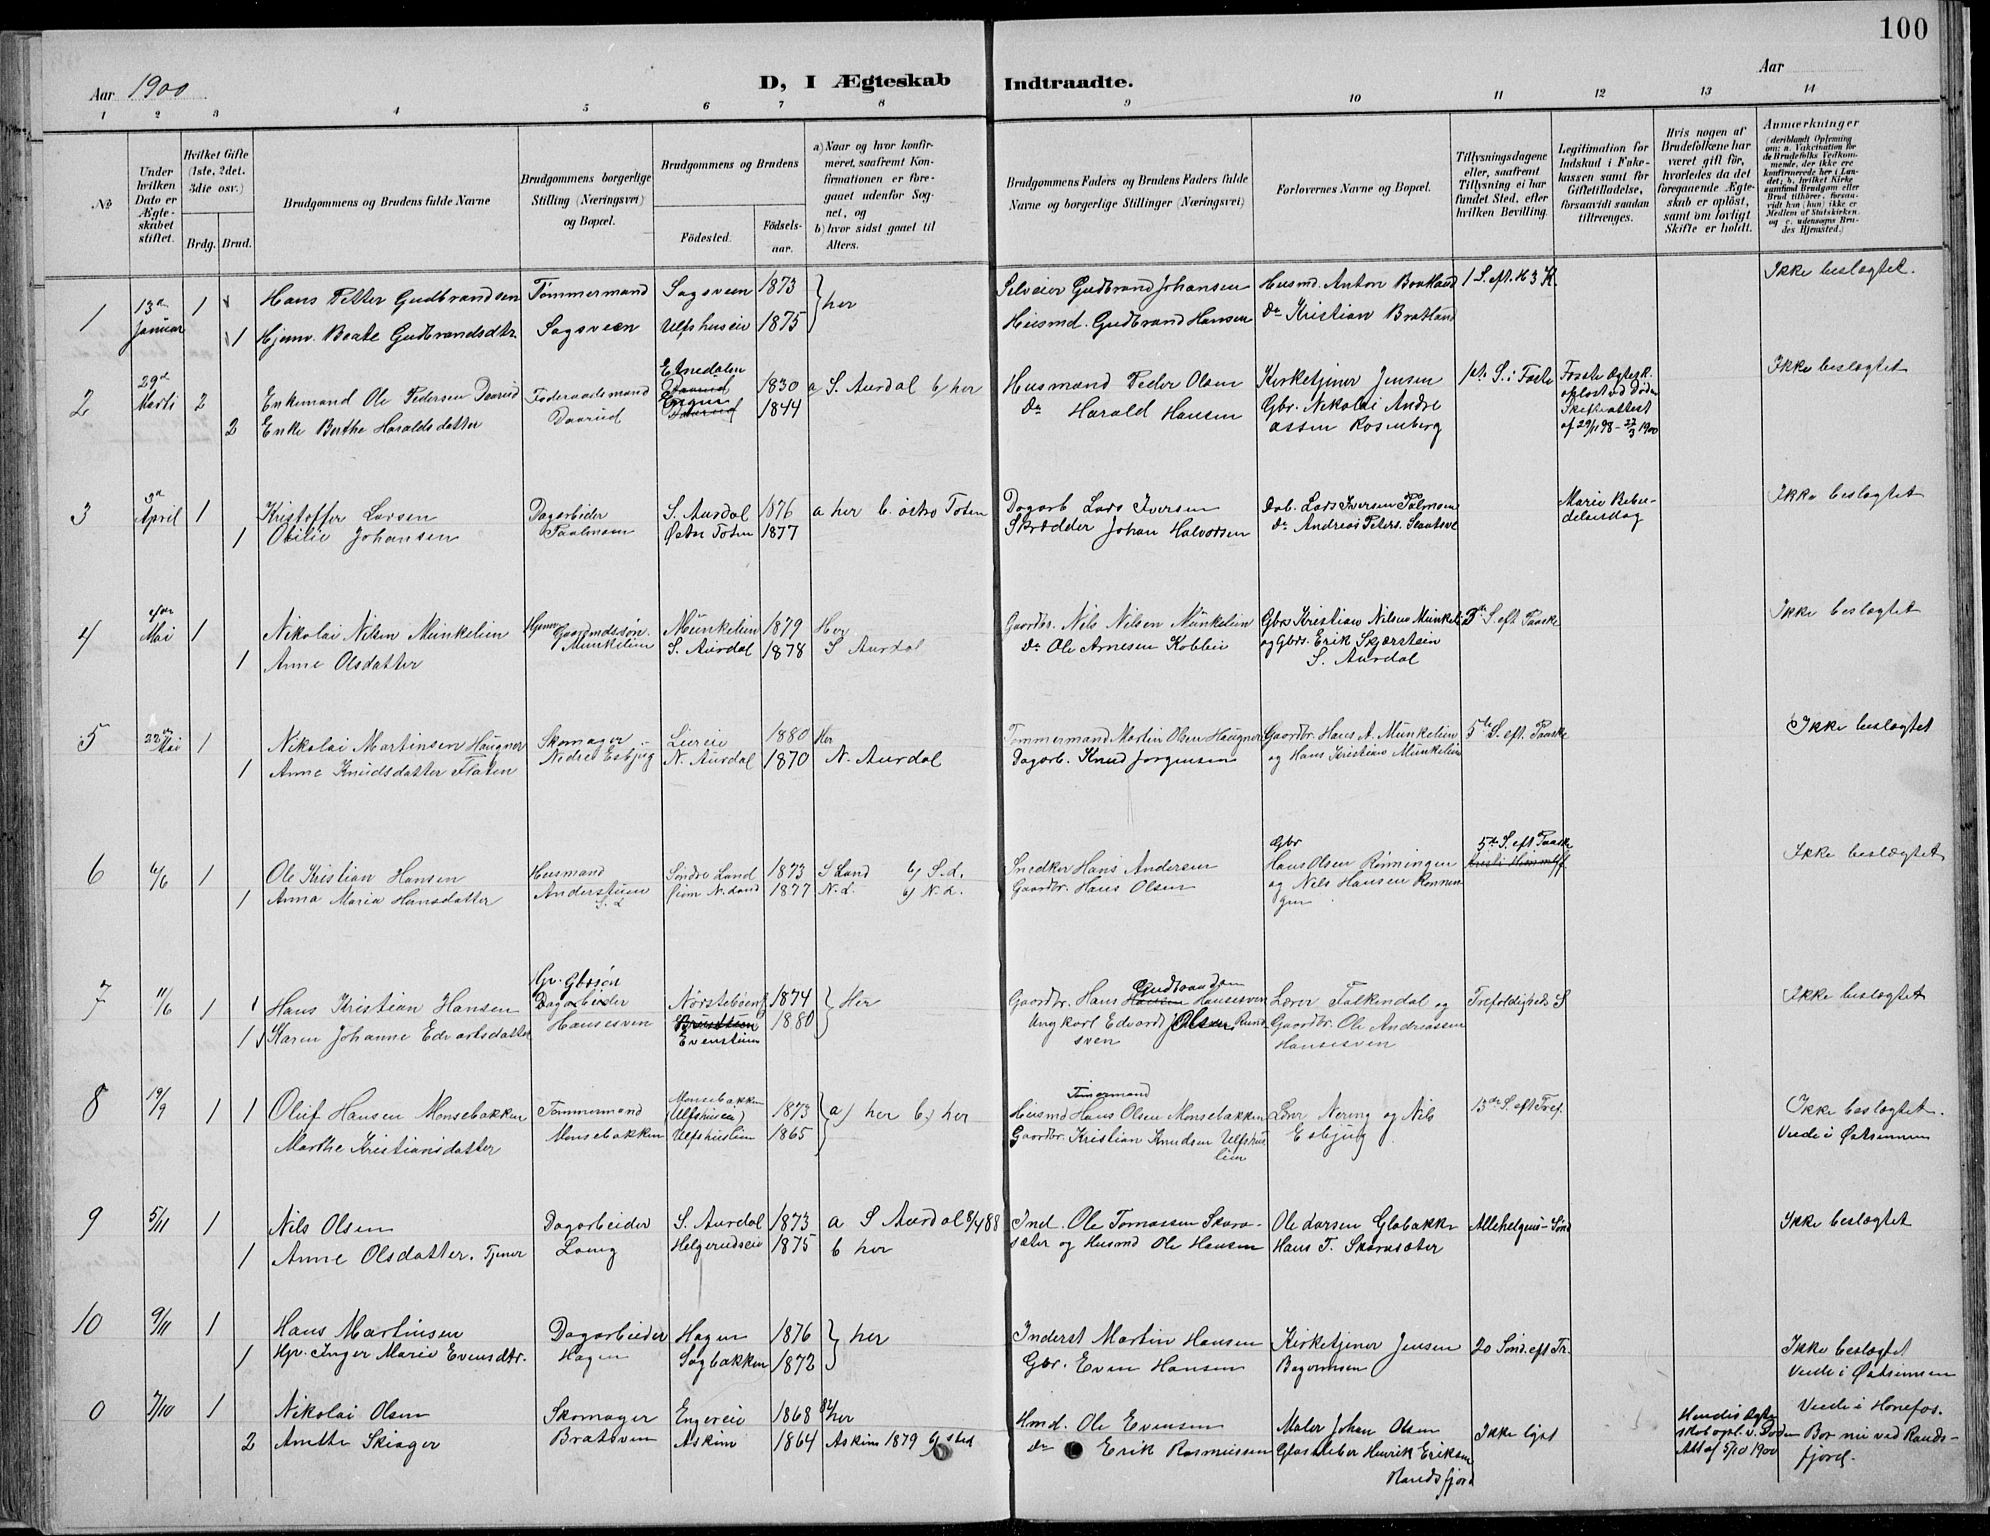 100
Aar 1900
D, I Ægteskab Indtraadte.
Aar
1 2 3 4 5 6 7 8 9 10 11 12 13 14
No
Under hvilken Dato er Ægteskabet stiftet.
Hvilket Gifte (1ste, 2det. 3die osv.)
Brdg. Brud.
Brudgommens og Brudens fulde Navne
Brudgommens borgerlige Stilling (Næringsvei) og Bopæl.
Brudgommens og Brudens
Fødested.
Fødselsaar.
a) Naar og hvor konfirmeret, saafremt Konfirmationen er foregaaet udenfor Sognet, og
b) hvor sidst gaaet til Alters.
Brudgommens Faders og Brudens Faders fulde Navne og borgerlige Stillinger (Næringsvei)
Forlovernes Navne og Bopæl.
Tillysningsdagene eller, saafremt Tillysning ei har fundet Sted, efter hvilken Bevilling.
Legitimation for Indskud i Enkekassen samt for Giftetilladelse, forsaavidt saadan tiltrænges.
Hvis nogen af Brudefolkene har været gift før, hvorledes da det foregaaende Ægteskab er opløst, samt om lovligt Skifte er holdt.
Anmærkninger (deriblandt Oplysning om: a. Vakcination for de Brudefolks Vedkommende, der ikke ere konfirmerede her i Landet; b. hvilket Kirkesamfund Brudgom eller Brud tilhører, forsaavidt han (hun) ikke er Medlem af Statskirken, og c. udensogns Brudes Hjemsted.)
1 13de Januar 1 Hans Petter Gudbrandsen Tømmermand Sagsveen 1873 } her Selveier Gudbrand Johansen Husmd. Anton Bratland 1 S. eft. H 3 K. Ikke beslægtet.
1 Hjemv. Beate Gudbrandsdtr. Sagsveen Ulfshuseie 1875 Husmd. Gudbrand Hansen do Kristian Bratland
2 29de Marts 2 Enkemand Ole Pedersen Daarud Føderaadsmand Daarud Etnedalen 1830 a S. Aurdal b) her Husmand Peder Olsen Kirketjener Jensen 1ste S. i Faste Ikke beslægtet
2 Enke Berthe Haraldsdatter 1844 do Harald Hansen Gbr. Nikolai Andreassen Rosenberg
3 3de April 1 Kristoffer Larsen Dagarbeider Paalmoen S. Aurdal 1876 a her b. østre Toten Dagarb Lars Iversen Dab. Lars Iversen Palmoen Marie Bebudelsesdag Ikke beslægtet
1 Otilie Johansen Østre Toten 1877 Skrædder Johan Halvorsen do Andreas Peters.
4 Mai 1 Nikolai Nilsen Munkelien Gaardmdssøn. Munkelien Munkelien 1879 Her Gaardbr. Nils Nilsen Munkelien Gbr Kristian Nilsen Munkel. 3de S. eft Paaske Ikke beslægtet
1 Anne Olsdatter S. Aurdal 1878 S Aurdal do Ole Arnesen Kobbeie og Gbr. Erik Skjerstein S. Aurdal
5 22de Mai 1 Nikolai Martinsen Haugner Skomager Nedre Esbjug Liereie 1880 Her Tømmermand Martin Olsen Haugner Gaardbr. Hans A. Munkelien 5te S. eft. Paaske Ikke beslægtet
1 Anne Knudsdatter Flaten N. Aurdal 1870 N. Aurdal Dagarb. Knud Jørgensen og Hans Kristians Munkelien
6 6/6 1 Ole Kristian Hansen Husmand Anderstuen S. L Søndre Land 1873 S Land b) S. L. Snedker Hans Andersen Gbr Hans Olsen Rønningen 5te S. eft Paaske Ikke beslægtet
1 Anna Marie Hansdatter N. Land 1877 N. L. b) N. L. Gaardbr. Hans Olsen og Nils Hansen Rønningen
7 11/6 1 Hans Kristian Hansen Gp. Gbrsøn Dagarbeider Hansesven Nørstebøen 1874 } Her Gaardbr. Hans Gudbrandsen Hansesven Lærer Falkendal og Trefoldigheds S Ikke beslægtet
1 Karen Johanne Edvartsdatter Evenstuen 1880 Ungkarl Edvard Olsen Rundsven Gaardbr. Ole Andreassen Hansesven
8 19/9 1 1 Oluf Hansen Monsebakken Tømmermand Monsebakken Monsebakken (Ulfshuseie) 1873 } a) her b) her Tømmermand Husmd Hans Olsen Monsebakken Lærer Nering og Nils Esbjug 13de S. eft Tref. Ikke beslægtet.
Marthe Kristiansdatter Ulfshuslien 1865 Gaardbr. Kristian Knudsen Ulfshuslien Viede i Østsinnen
9 5/11 1 Nils Olsen Dagarbeider Loeng S. Aurdal 1873 a S Aurdal 8/4 88 Ind. Ole Tomassen Skaraseter og Husmd Ole Hansen Ole Larsen Globakke Allehelgens-Sønd Ikke beslægtet
1 Anne Olsdatter. Tjener Helgerudseie 1875 b her Hans T. Skaraseter
10 9/11 1 Hans Martinsen Dagarbeider Hagen Hagen 1876 } her Inderst Martin Hansen Kirketjener Jensen 20 Sønd. eft Tr. Ikke beslægtet
1 Hp. Inger Marie Evensdtr. Sagbakken 1872 Gbr. Even Hansen Viede i Østsinnen
0 7/10 1 Nikolai Olsen Skomager Bratsven Engereie 1868 her Hmd. Ole Evensen Maler Johan Olsen Ikke lyst Viede i Hønefos.
2 Anette Skiøger Askim 1864 Askim 1879 b sted do Erik Rasmussen Glassliber Henrik Eriksen Randsfjord Hendes Ægteskab opl. v. Døden Att af 5/10 1900 Bor nu ved Randsfjord.